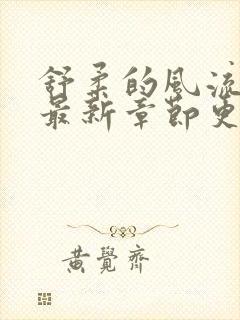 舒柔的風流
最新章節更
黃覺齊